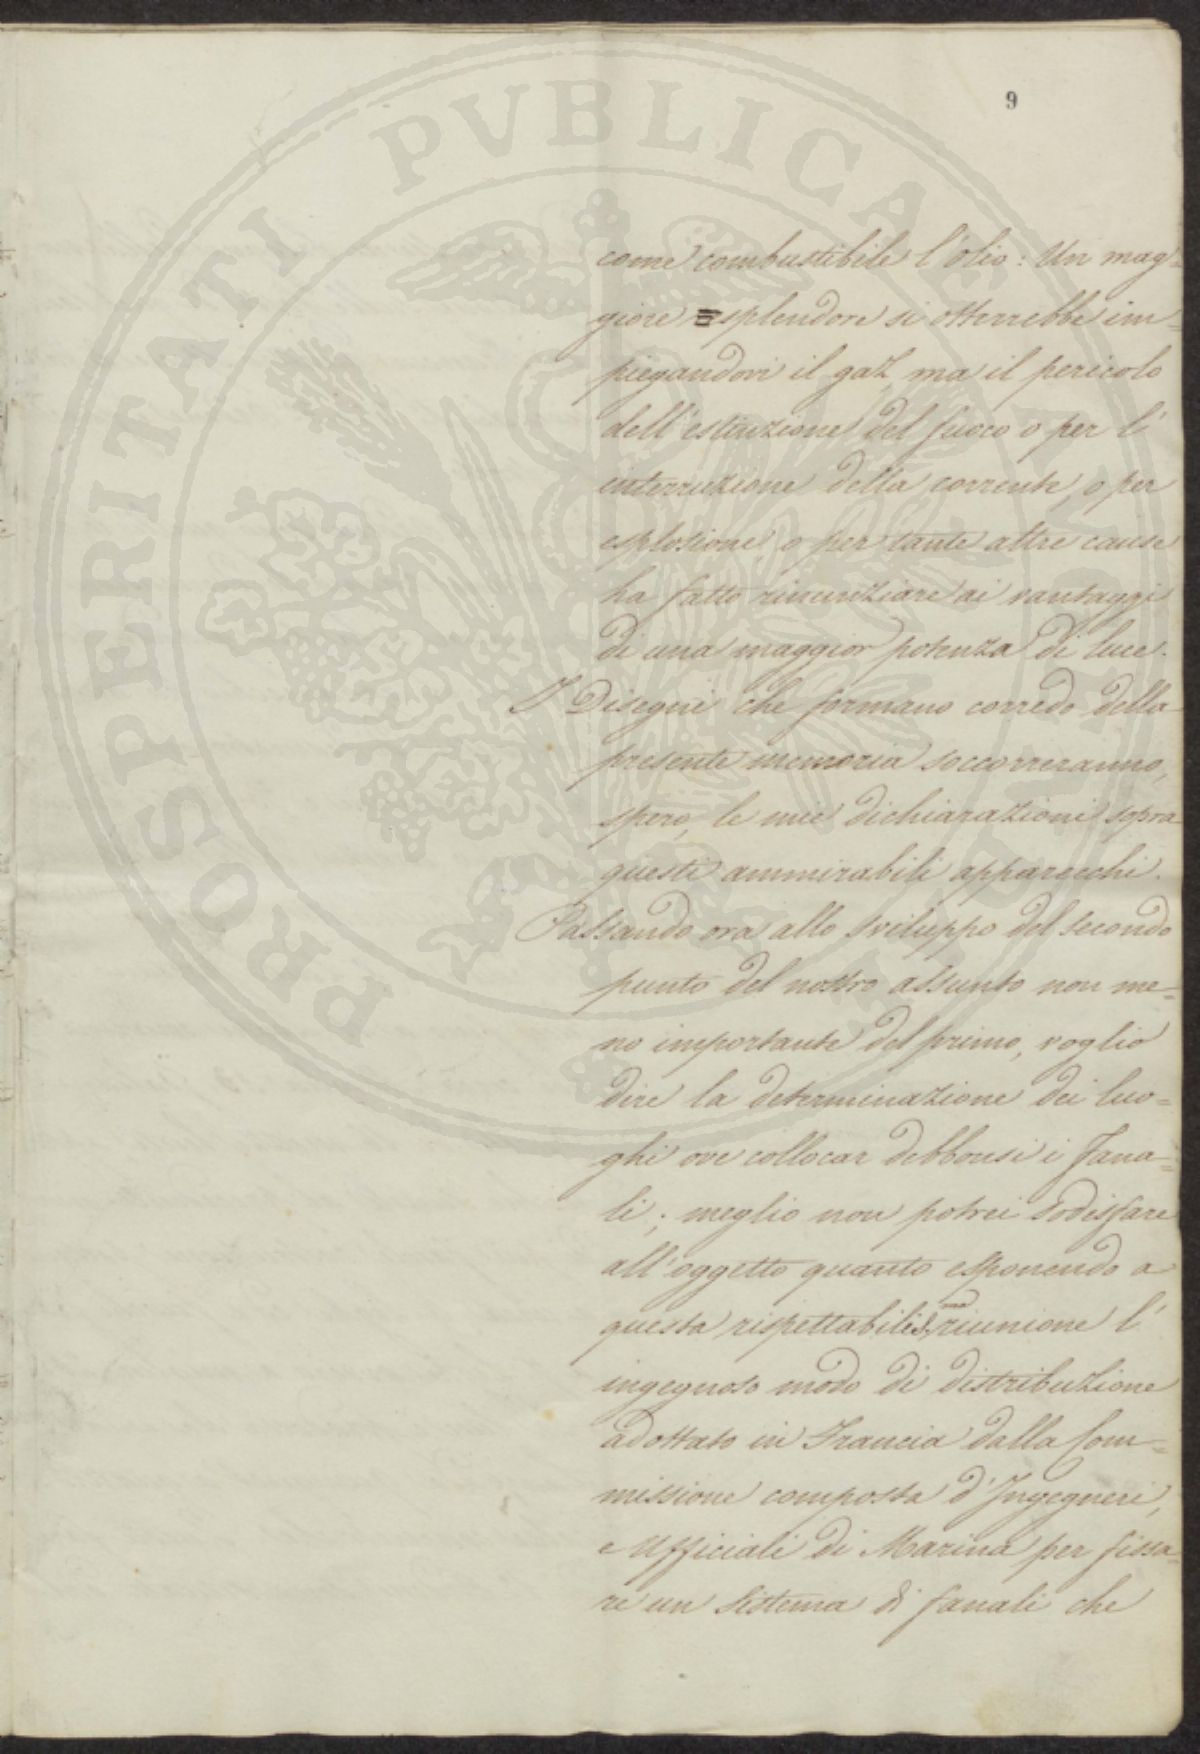 9
PROSPERITATI PVBLICAE
come combustibile l'olio: Un mag=
giore splendore si otterrebbe im=
piegandovi il gaz, ma il pericolo
dell'estinzione del fuoco o per l'
interruzione della corrente, o per
esplosione, o per tante altre cause
ha fatto rinunziare ai vantaggi
di una maggior potenza di luce.
I Disegni che formano corredo della
presente memoria soccorreranno,
spero, le mie dichiarazioni sopra
questi ammirabili apparecchi.
Passando ora allo sviluppo del secondo
punto del nostro assunto non me=
no importante del primo, voglio
dire la determinazione dei luo=
ghi ove collocar debbonsi i Fana=
li; meglio non potrei sodisfare
all'oggetto quanto esponendo a
questa rispettabilis.ma riunione l'
ingegnoso modo di distribuzione
adottato in Francia dalla Com=
missione composta d'Ingegneri,
e Ufficiali di Marina per fissa=
re un sistema di fanali che